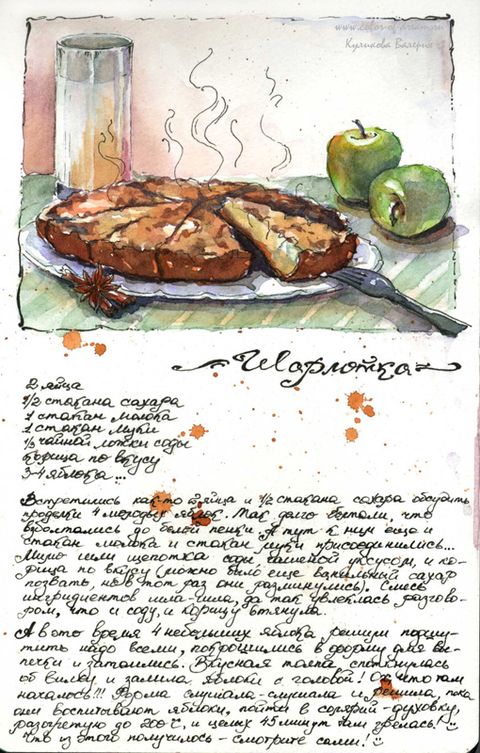 www.color-of-dream.ru
Куликова Валерия
Шарлотка
2 яйца
1/2 стакана сахара
1 стакан молока
1 стакан муки
1/3 чайной ложки соды
корица по вкусу
3-4 яблока...
Встретились как-то 2 яйца и 1/2 стакана сахара обсудить
проделки 4 молодых яблок. Так долго болтали, что
взболтались до белой пенки. А тут к ним еще и
стакан молока и стакан муки присоединились...
Мимо шли щепотка соды гашеной уксусом, и ко-
рица по вкусу (можно было еще ванильный сахар
позвать, но в этот раз они разминулись). Смесь
ингридиентов шла-шла, да так увлеклась разгово-
ром, что и соду, и корицу втянула.
А в это время 4 небольших яблока, решили подшу-
тить надо всеми, покрошились в форму для вы-
печки и затаились. Вкусная толпа споткнулась
об вилку и залила яблоки с головой! Ох что там
началось!!! Форма слушала-слушала и решила, пока
они воспитывают яблоки, пойти в солярий-духовку,
разогретую до 200°С, и целых 45 минут там грелась!
Что из этого получилось - смотрите сами!